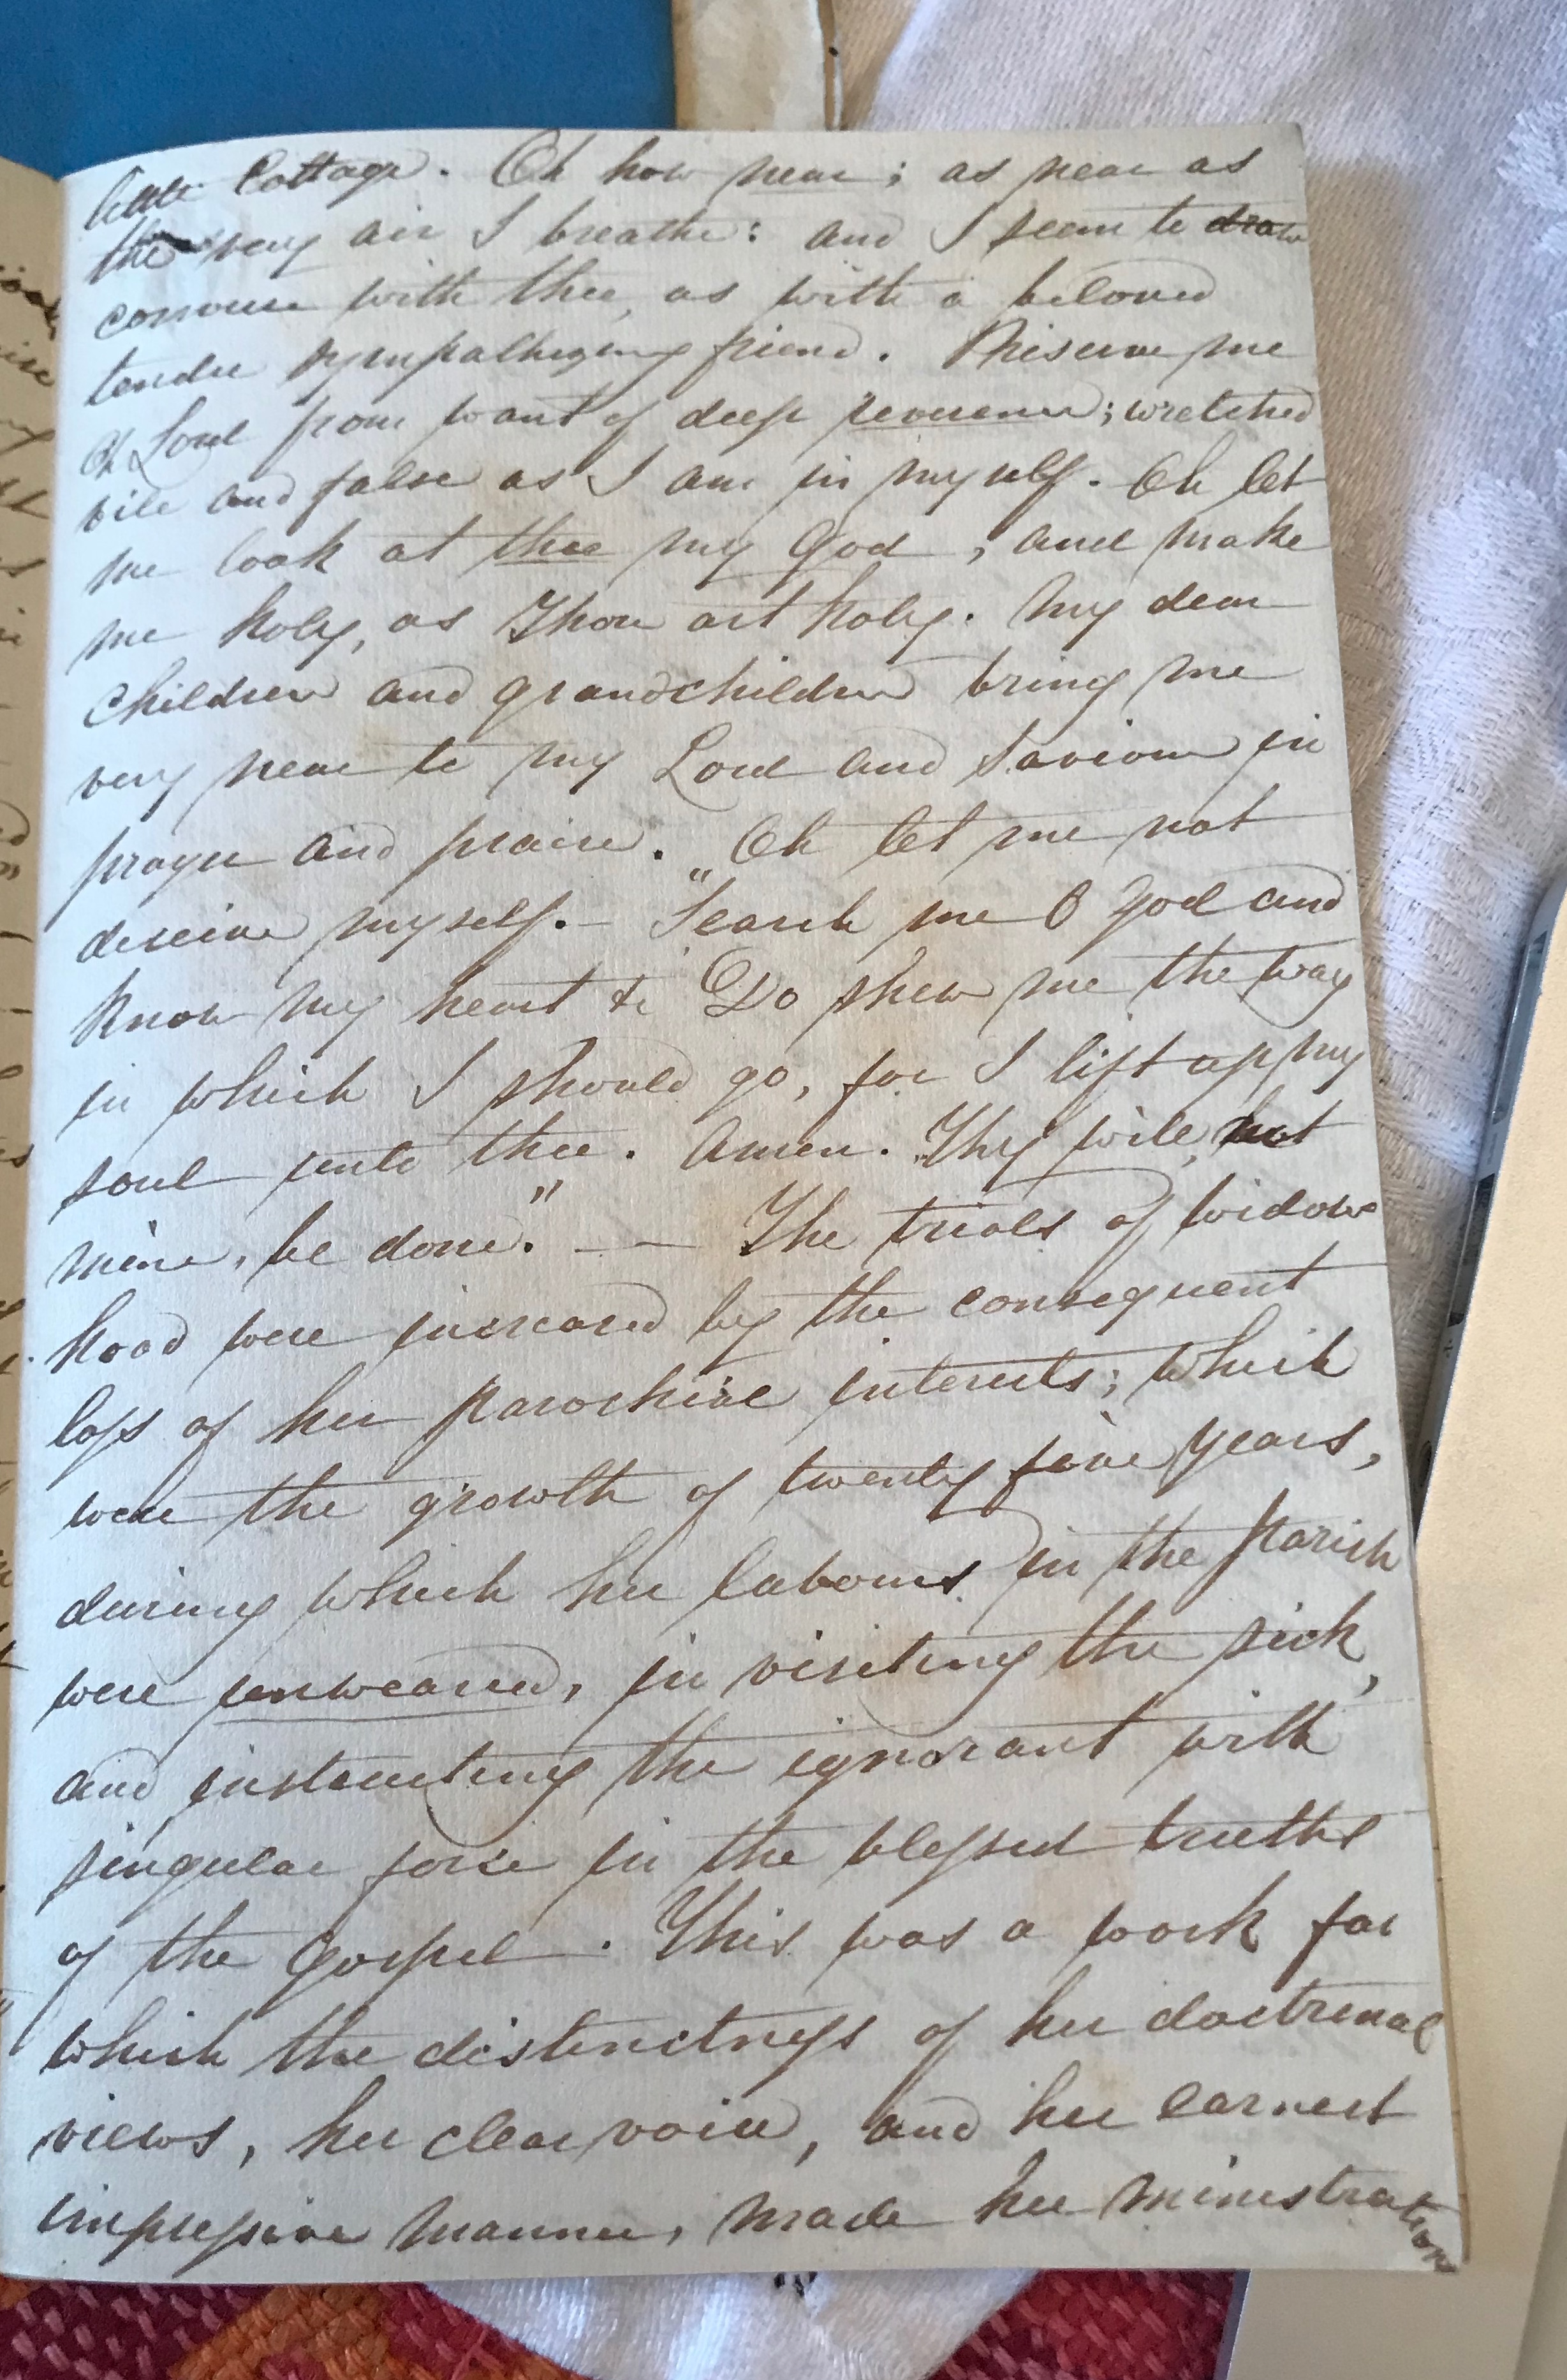 little Cottage. Oh how near; as near as
the very air I breathe: and I seem to draw
converse with thee, as with a beloved
tender sympathizing friend. Preserve me
Oh Lord from want of deep reverence; wretched
vile and false as I am in myself. Oh let
me look at thee my God, and make
me holy, as Thou art holy. My dear
children and grandchildren bring me
very near to my Lord and Saviour in
prayer and praise. Oh let me not
deceive myself. - "Search me O God and
know my heart &c Do shew me the way
in which I should go, for I lift up my
soul unto thee. Amen. Thy will, not
mine, be done." - - The trials of widow
hood were increased by the consequent
loss of her parochial interests; which
were the growth of twenty five years,
during which her labours in the Parish
were unwearied, in visiting the sick,
and instructing the ignorant with
singular force in the blessed truths
of the Gospel. This was a work for
which the distinctness of her doctrinal
views, her clear voice, and her earnest
impressive manner, made her ministrations